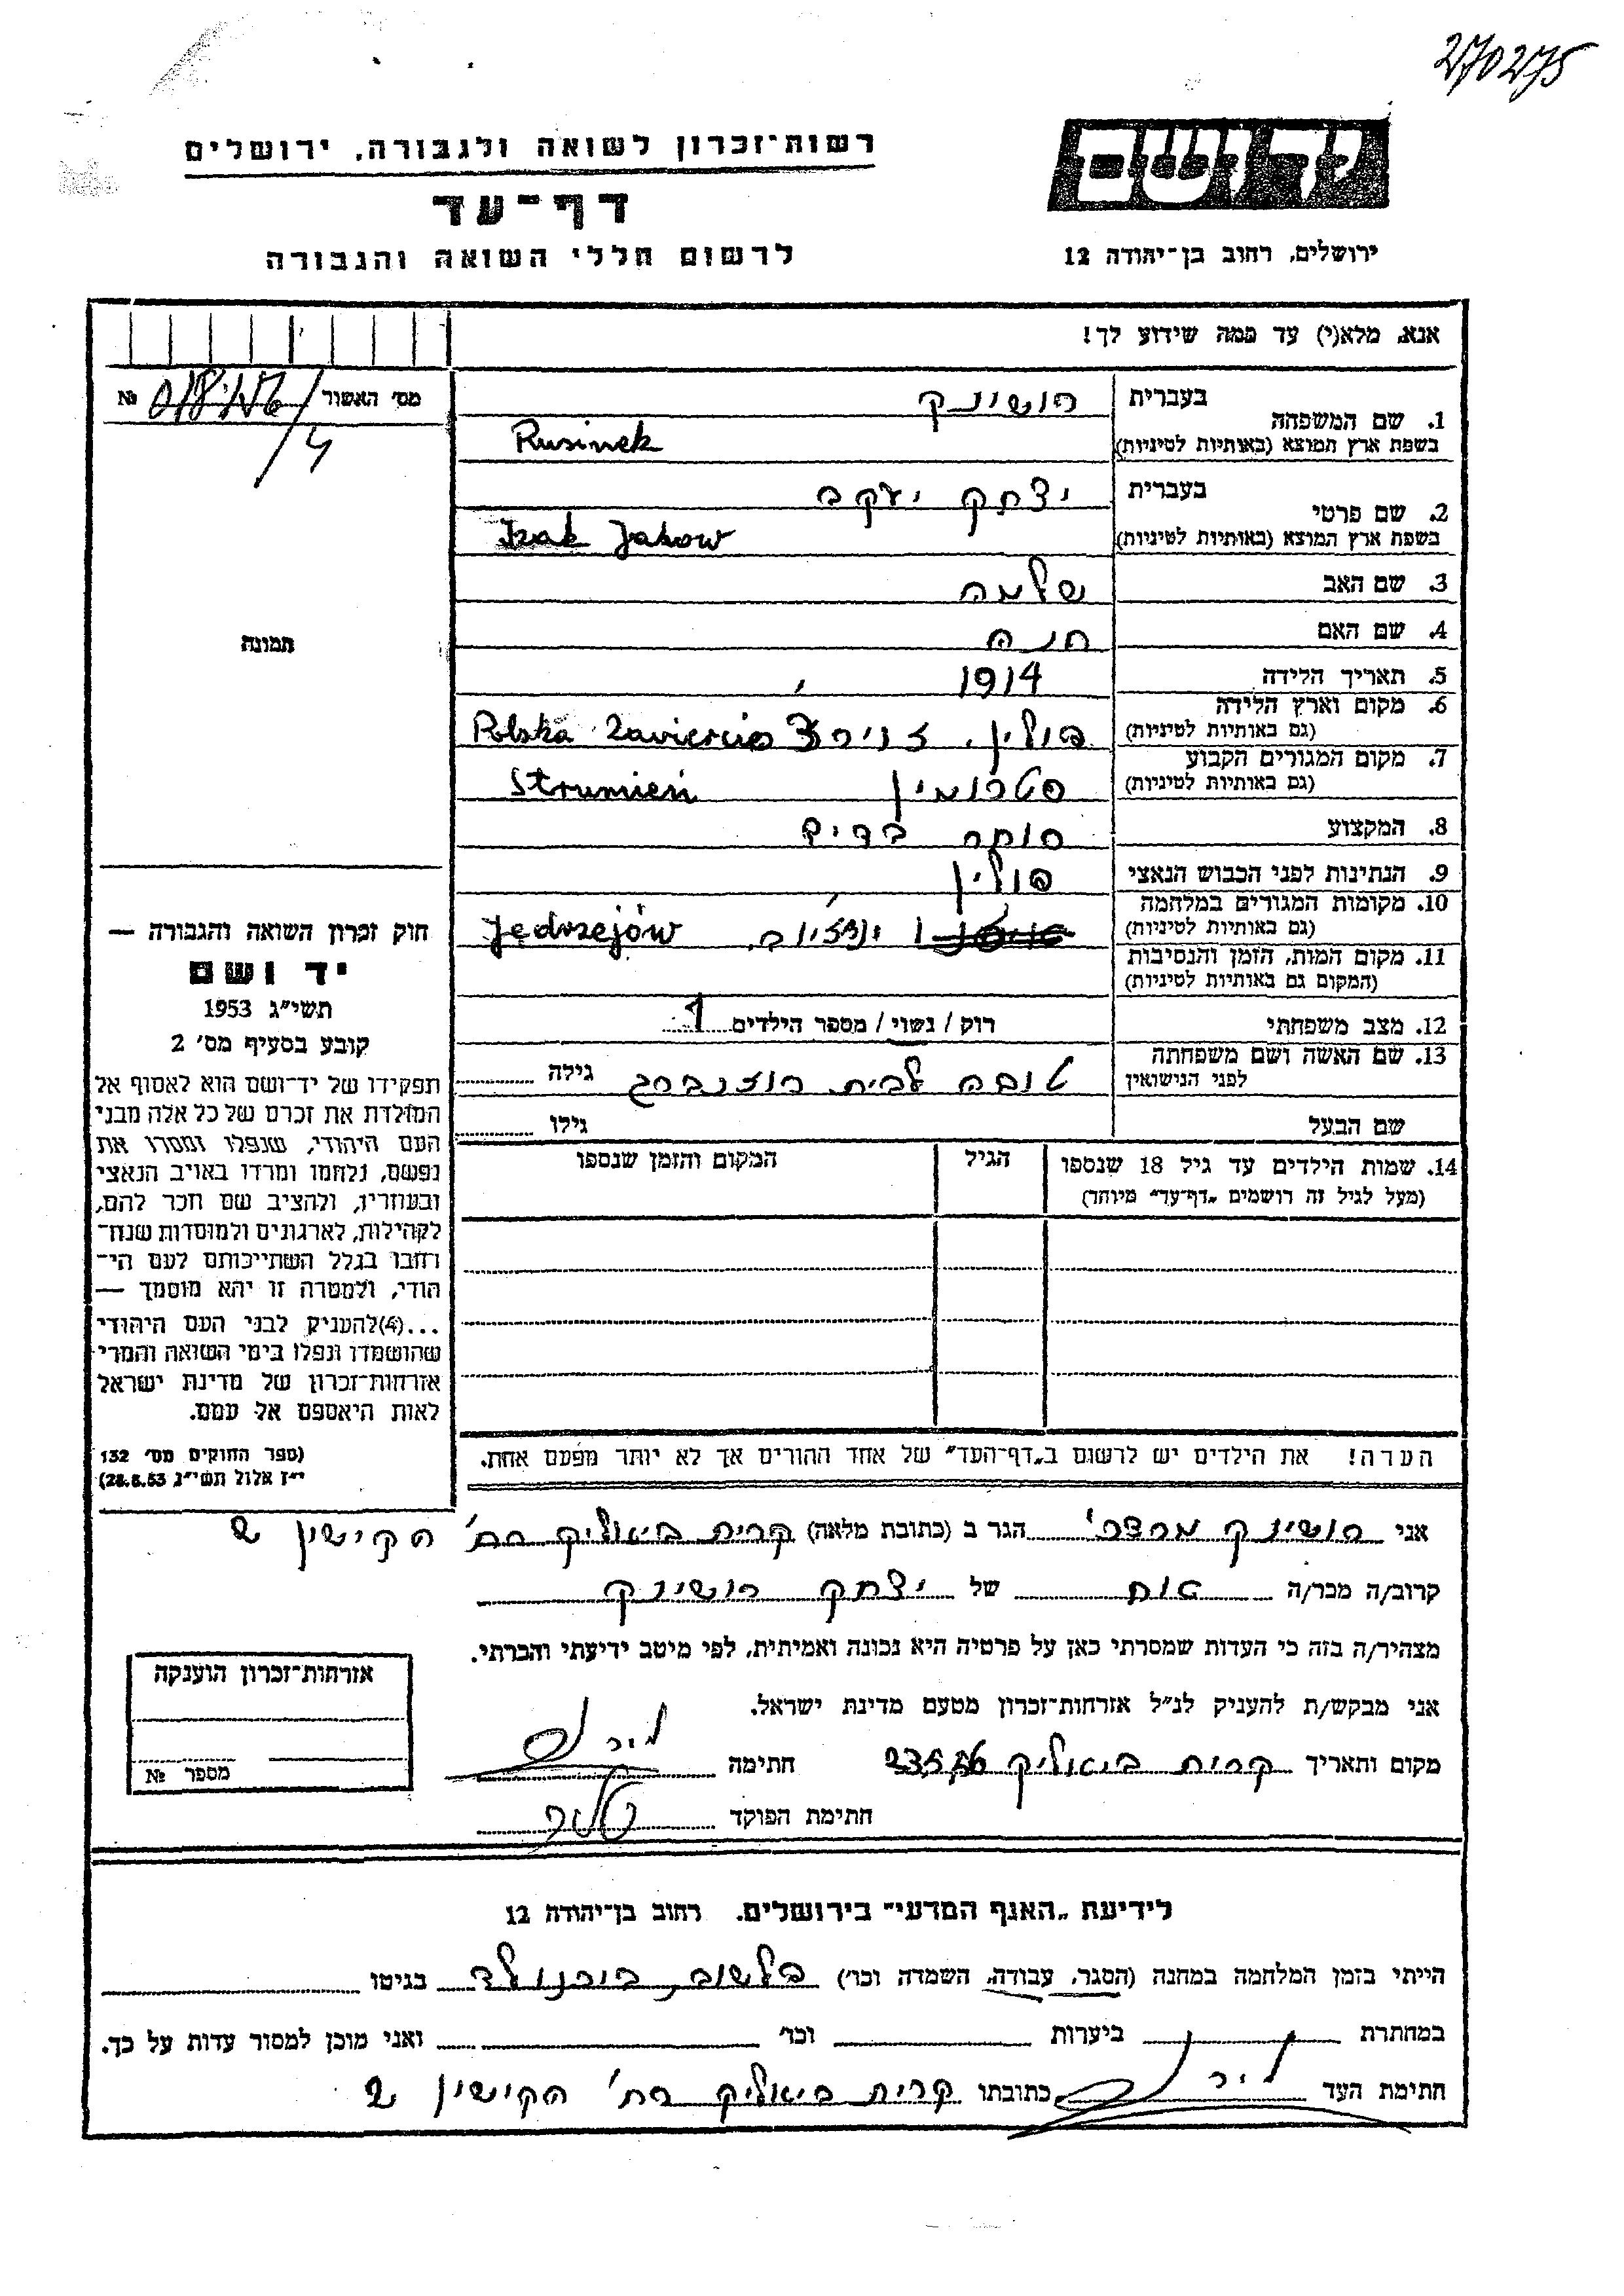 270275
יד ושם
ירושלים, רחוב בן־יהודה 12
רשות־זכרון לשואה ולגבורה, ירושלים
דף־עד
לרשום חללי השואה והגבורה
אנא, מלא(י) עד כמה שידוע לך!
מס' האשור №
4
תמונה
1. שם המשפחה בעברית רושינק
בשפת ארץ המוצא (באותיות לטיניות) Rusinek
2. שם פרטי בעברית יצחק יעקב
בשפת ארץ המוצא (באותיות לטיניות) Izak Jakow
3. שם האב שלמה
4. שם האם חנה
5. תאריך הלידה 1914
6. מקום וארץ הלידה
(גם באותיות לטיניות) פולין, Polska Zawiercie
7. מקום המגורים הקבוע
(גם באותיות לטיניות) סטרומין Strumień
8. המקצוע סוחר בדים
9. הנתינות לפני הכבוש הנאצי פולין
10. מקומות המגורים במלחמה
(גם באותיות לטיניות) Jędrzejów
11. מקום המות, הזמן והנסיבות
(המקום גם באותיות לטיניות)
12. מצב משפחתי רוק / נשוי / מספר הילדים 1
13. שם האשה ושם משפחתה
לפני הנישואין טובה לבית רוזנברג גילה
שם הבעל גילו
14. שמות הילדים עד גיל 18 שנספו הגיל המקום והזמן שנספו
(מעל לגיל זה רושמים „דף־עד" מיוחד)
הערה! את הילדים יש לרשום ב„דף־העד" של אחד ההורים אך לא יותר מפעם אחת.
חוק זכרון השואה והגבורה —
יד ושם
תשי"ג 1953
קובע בסעיף מס' 2
תפקידו של יד־ושם הוא לאסוף אל
המולדת את זכרם של כל אלה מבני
העם היהודי, שנפלו ומסרו את
נפשם, נלחמו ומרדו באויב הנאצי
ובעוזריו, ולהציב שם וזכר להם,
לקהילות, לארגונים ולמוסדות שנח־
רבו בגלל השתייכותם לעם הי־
הודי, ולמטרה זו יהא מוסמך —
...(4) להעניק לבני העם היהודי
שהושמדו ונפלו בימי השואה והמרי
אזרחות־זכרון של מדינת ישראל
לאות היאספם אל עמם.
(ספר החוקים מס' 132
י"ז אלול תשי"ג 28.8.53)
אני רושינק מרדכי הגר ב (כתובת מלאה) קרית ביאליק רח' הקישון 2
קרוב/ה מכר/ה אח של יצחק רושינק
מצהיר/ה בזה כי העדות שמסרתי כאן על פרטיה היא נכונה ואמיתית, לפי מיטב ידיעתי והכרתי.
אני מבקש/ת להעניק לנ"ל אזרחות־זכרון מטעם מדינת ישראל.
מקום ותאריך קרית ביאליק 23.5.56 חתימה
חתימת הפוקד
אזרחות־זכרון הוענקה
מספר №
לידיעת „האגף המדעי" בירושלים, רחוב בן־יהודה 12
הייתי בזמן המלחמה במחנה (הסגר, עבודה, השמדה וכו') בוכנולד בגיטו
במחתרת ביערות וכו' ואני מוכן למסור עדות על כך.
חתימת העד כתובתו קרית ביאליק רח' הקישון 2